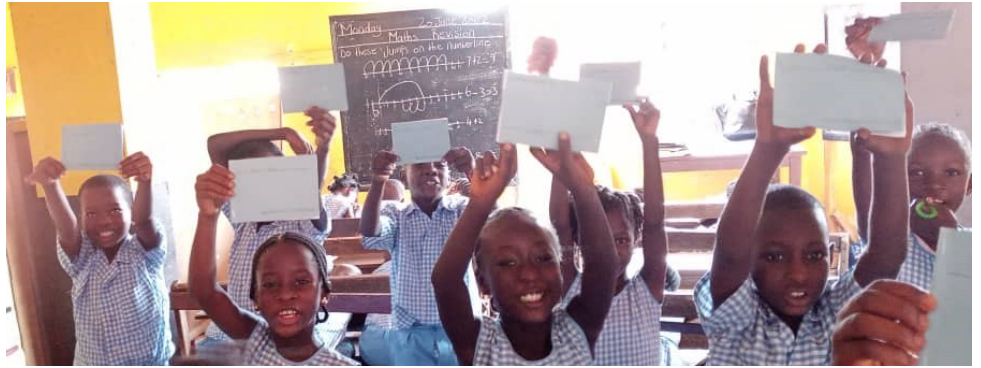 Monday 20 June
Maths Revision
Do these jumps on the numberline
7+2=9
6-3=3
4+2